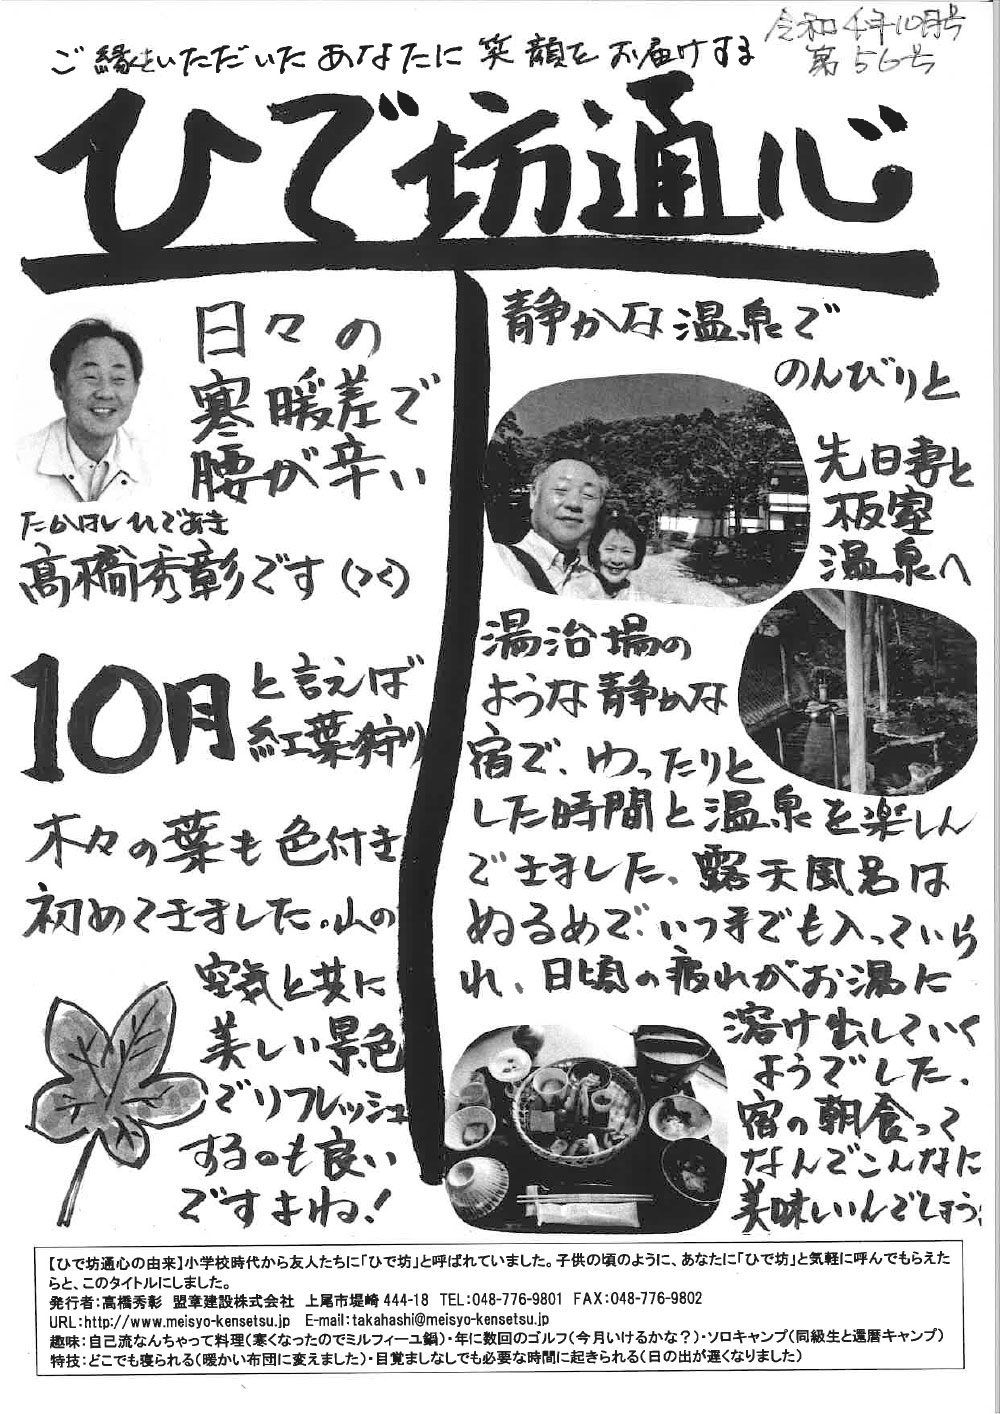 令和4年10月号
第56号
ご縁をいただいたあなたに笑顔をお届けする
ひで坊通心
日々の
寒暖差で
腰が辛い
たかはしひであき
髙橋秀彰です(><)
10月
と言えば
紅葉狩り
木々の葉も色付き
初めてきました。山の
空気と共に
美しい景色
でリフレッシュ
するのも良い
ですよね!
静かな温泉で
のんびりと
先日妻と
板室
温泉へ
湯治場の
ような静かな
宿で、ゆったりと
した時間と温泉を楽しん
できました、露天風呂は
ぬるめで、いつまでも入っていら
れ、日頃の疲れがお湯に
溶け出していく
ようでした、
宿の朝食って
なんでこんなに
美味しいんでしょう、
【ひで坊通心の由来】小学校時代から友人たちに「ひで坊」と呼ばれていました。子供の頃のように、あなたに「ひで坊」と気軽に呼んでもらえた
らと、このタイトルにしました。
発行者:高橋秀彰 盟章建設株式会社 上尾市堤崎444-18 TEL:048-776-9801 FAX:048-776-9802
URL:http://www.meisyo-kensetsu.jp E-mail:takahashi@meisyo-kensetsu.jp
趣味:自己流なんちゃって料理(寒くなったのでミルフィーユ鍋)・年に数回のゴルフ(今月いけるかな?)・ソロキャンプ(同級生と還暦キャンプ)
特技:どこでも寝られる(暖かい布団に変えました)・目覚ましなしでも必要な時間に起きられる(日の出が遅くなりました)